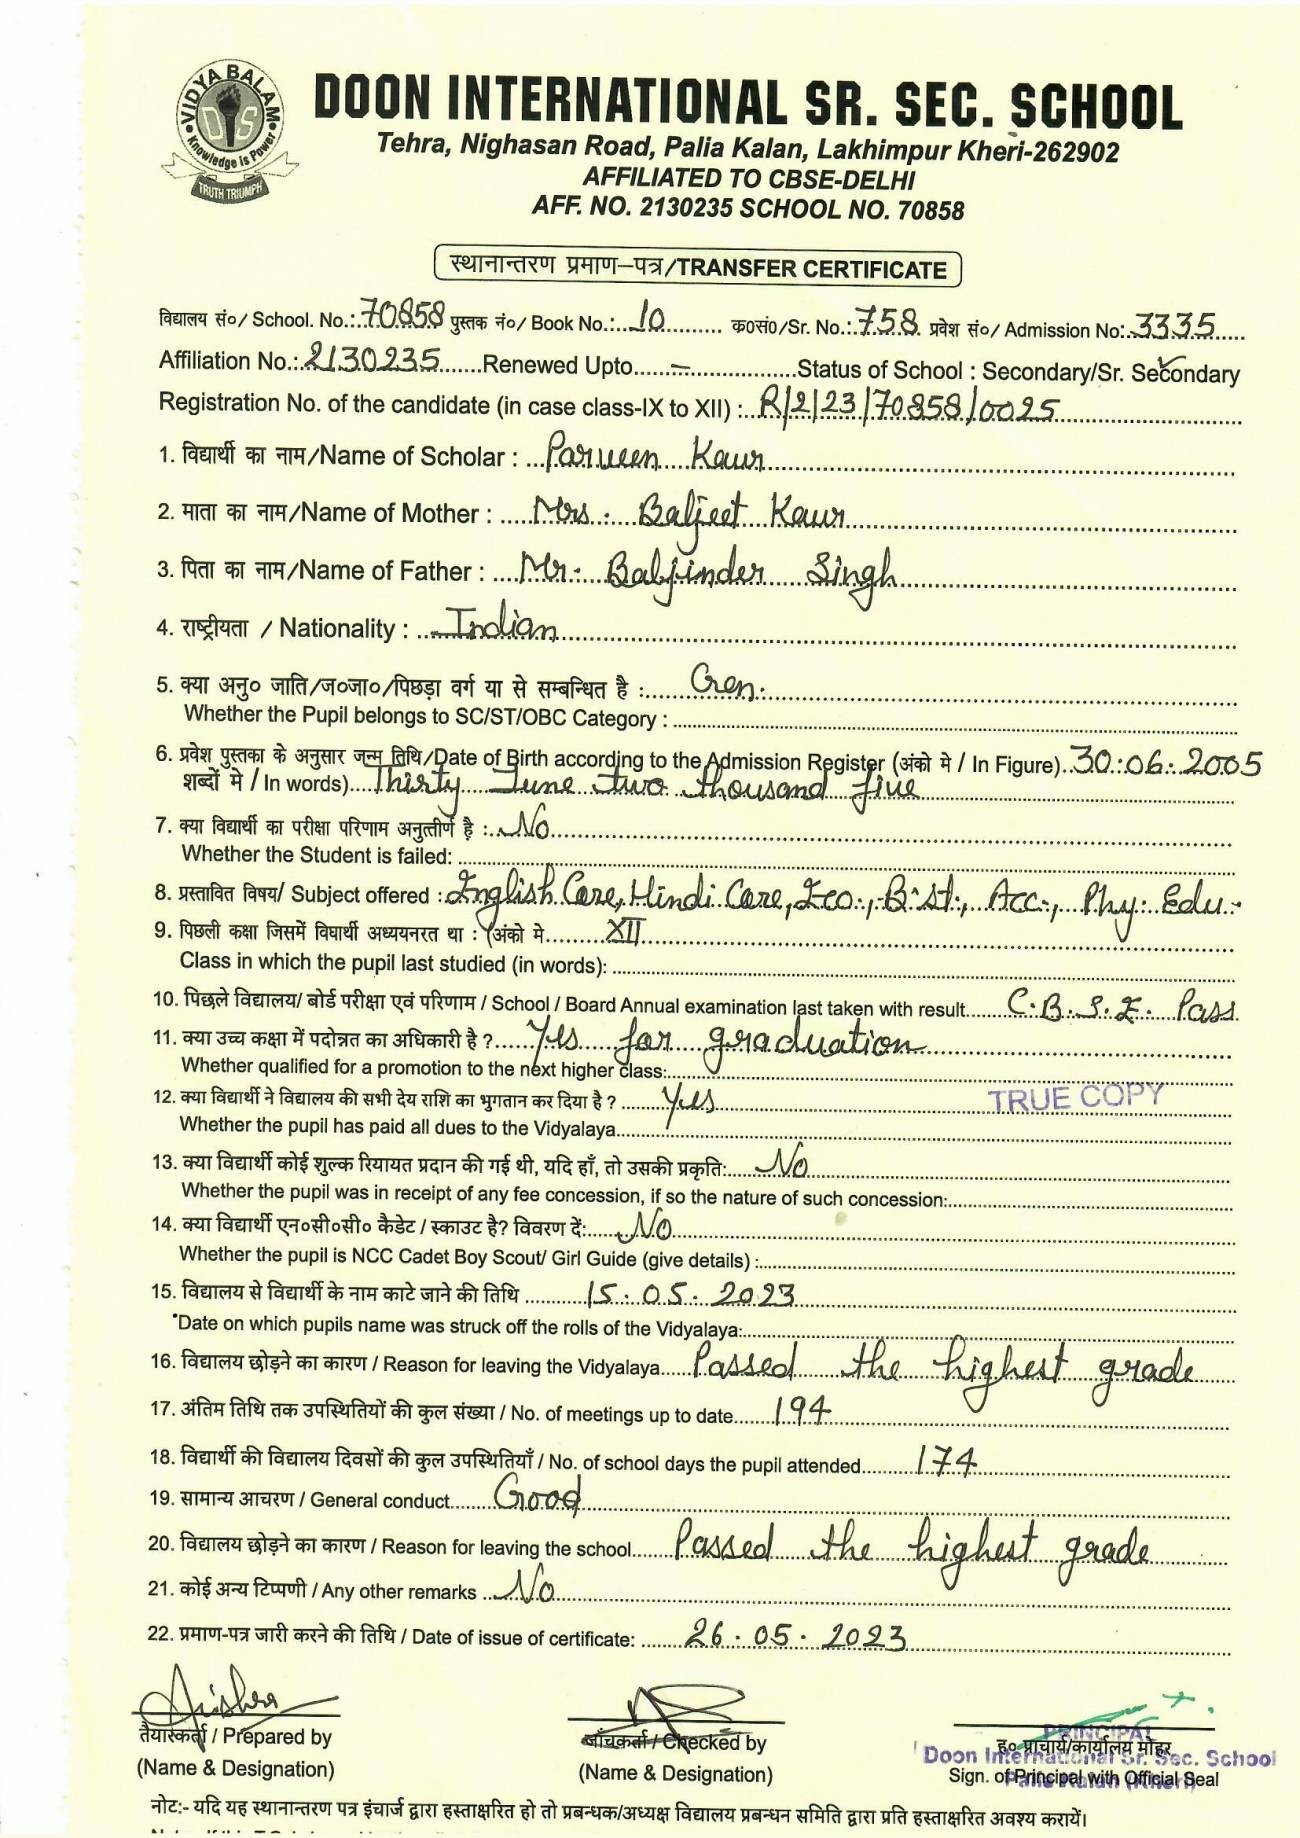 VIDYA BALAM
DIS
Knowledge is Power
TRUTH TRIUMPH
DOON INTERNATIONAL SR. SEC. SCHOOL
Tehra, Nighasan Road, Palia Kalan, Lakhimpur Kheri-262902
AFFILIATED TO CBSE-DELHI
AFF. NO. 2130235 SCHOOL NO. 70858
स्थानान्तरण प्रमाण–पत्र/TRANSFER CERTIFICATE
विद्यालय सं०/ School. No.:.70858 पुस्तक नं०/ Book No.:..10......... क०सं०/Sr. No.:.758 प्रवेश सं०/ Admission No:.3335.....
Affiliation No.:.2130235.......Renewed Upto......–..................Status of School : Secondary/Sr. Secondary ✓
Registration No. of the candidate (in case class-IX to XII) : R/2/23/70858/0025
1. विद्यार्थी का नाम/Name of Scholar : ...Parveen Kaur
2. माता का नाम/Name of Mother : .....Mrs. Baljeet Kaur
3. पिता का नाम/Name of Father : ....Mr. Baljinder Singh
4. राष्ट्रीयता / Nationality : ...Indian
5. क्या अनु० जाति/ज०जा०/पिछड़ा वर्ग या से सम्बन्धित है :.......Gen.
Whether the Pupil belongs to SC/ST/OBC Category :
6. प्रवेश पुस्तका के अनुसार जन्म तिथि/Date of Birth according to the Admission Register (अंको मे / In Figure)..30.06.2005
शब्दों मे / In words)....Thirty June two thousand five
7. क्या विद्यार्थी का परीक्षा परिणाम अनुत्तीर्ण है :..No
Whether the Student is failed:
8. प्रस्तावित विषय/ Subject offered :.English Core, Hindi Core, Eco., B.st., Acc., Phy. Edu.
9. पिछली कक्षा जिसमें विघार्थी अध्ययनरत था : (अंको मे.........XII
Class in which the pupil last studied (in words):
10. पिछले विद्यालय/ बोर्ड परीक्षा एवं परिणाम / School / Board Annual examination last taken with result....... C.B.S.E. Pass
11. क्या उच्च कक्षा में पदोन्नत का अधिकारी है ?......Yes for graduation
Whether qualified for a promotion to the next higher class:
12. क्या विद्यार्थी ने विद्यालय की सभी देय राशि का भुगतान कर दिया है ? .......Yes
TRUE COPY
Whether the pupil has paid all dues to the Vidyalaya
13. क्या विद्यार्थी कोई शुल्क रियायत प्रदान की गई थी, यदि हाँ, तो उसकी प्रकृति:.....No
Whether the pupil was in receipt of any fee concession, if so the nature of such concession:
14. क्या विद्यार्थी एन०सी०सी० कैडेट / स्काउट है? विवरण दें:......No
Whether the pupil is NCC Cadet Boy Scout/ Girl Guide (give details) :
15. विद्यालय से विद्यार्थी के नाम काटे जाने की तिथि ..........15.05.2023
Date on which pupils name was struck off the rolls of the Vidyalaya:
16. विद्यालय छोड़ने का कारण / Reason for leaving the Vidyalaya.....Passed the highest grade
17. अंतिम तिथि तक उपस्थितियों की कुल संख्या / No. of meetings up to date.......194
18. विद्यार्थी की विद्यालय दिवसों की कुल उपस्थितियाँ / No. of school days the pupil attended..........174
19. सामान्य आचरण / General conduct........Good
20. विद्यालय छोड़ने का कारण / Reason for leaving the school.......Passed the highest grade
21. कोई अन्य टिप्पणी / Any other remarks ...No
22. प्रमाण-पत्र जारी करने की तिथि / Date of issue of certificate: ........26.05.2023
तैयारकर्ता / Prepared by
(Name & Designation)
जाँचकर्ता / Checked by
(Name & Designation)
PRINCIPAL
ह० प्राचार्य/कार्यालय मोहर
Doon International Sr. Sec. School
Sign. of Principal with Official Seal
Palia Kalan (Kheri)
नोटः- यदि यह स्थानान्तरण पत्र इंचार्ज द्वारा हस्ताक्षरित हो तो प्रबन्धक/अध्यक्ष विद्यालय प्रबन्धन समिति द्वारा प्रति हस्ताक्षरित अवश्य करायें।